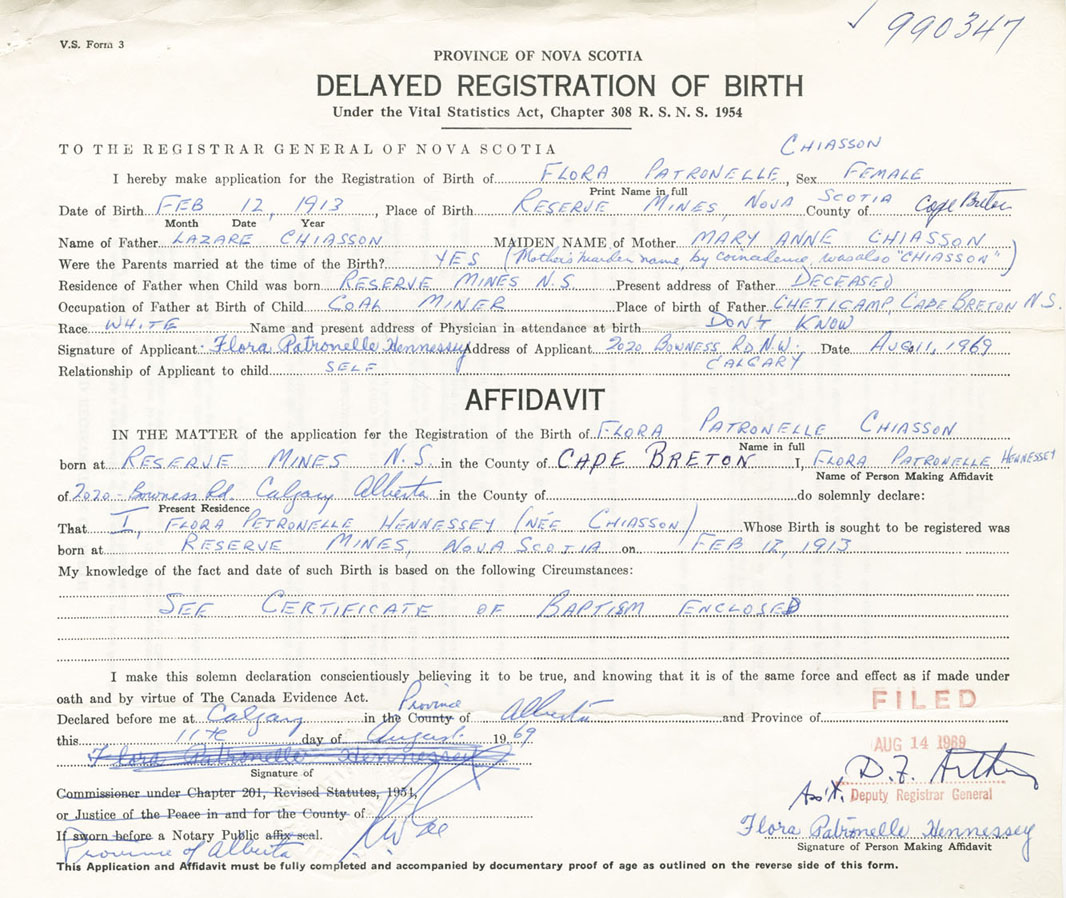 V.S. Form 3
✓ 990347
PROVINCE OF NOVA SCOTIA
DELAYED REGISTRATION OF BIRTH
Under the Vital Statistics Act, Chapter 308 R. S. N. S. 1954
TO THE REGISTRAR GENERAL OF NOVA SCOTIA
CHIASSON
I hereby make application for the Registration of Birth of FLORA PATRONELLE, Sex FEMALE
Print Name in full
Date of Birth FEB 12, 1913, Place of Birth RESERVE MINES, NOVA SCOTIA County of Cape Breton
Month Date Year
Name of Father LAZARE CHIASSON MAIDEN NAME of Mother MARY ANNE CHIASSON
Were the Parents married at the time of the Birth? YES (Mother's maiden name, by coincidence, was also "CHIASSON")
Residence of Father when Child was born RESERVE MINES N.S. Present address of Father DECEASED
Occupation of Father at Birth of Child COAL MINER Place of birth of Father CHETICAMP, CAPE BRETON N.S.
Race WHITE Name and present address of Physician in attendance at birth DON'T KNOW
Signature of Applicant Flora Patronelle Hennessey Address of Applicant 2020 BOWNESS RD N.W. Date AUG 11, 1969
Relationship of Applicant to child SELF CALGARY
AFFIDAVIT
IN THE MATTER of the application for the Registration of the Birth of FLORA PATRONELLE CHIASSON
Name in full
born at RESERVE MINES N.S. in the County of CAPE BRETON I, FLORA PATRONELLE HENNESSEY
Name of Person Making Affidavit
of 2020 - Bowness Rd. Calgary Alberta in the County of do solemnly declare:
Present Residence
That I, FLORA PETRONELLE HENNESSEY (NÉE CHIASSON) Whose Birth is sought to be registered was
born at RESERVE MINES, NOVA SCOTIA on FEB 12, 1913
My knowledge of the fact and date of such Birth is based on the following Circumstances:
SEE CERTIFICATE OF BAPTISM ENCLOSED
I make this solemn declaration conscientiously believing it to be true, and knowing that it is of the same force and effect as if made under
oath and by virtue of The Canada Evidence Act.
FILED
Province
Declared before me at Calgary in the County of Alberta and Province of
this 11th day of August 1969
AUG 14 1969
Flora Patronelle Hennessey
Signature of
D.F. Arthur
Ass't. Deputy Registrar General
Commissioner under Chapter 201, Revised Statutes, 1954,
or Justice of the Peace in and for the County of
If sworn before a Notary Public affix seal.
Province of Alberta
Flora Patronelle Hennessey
Signature of Person Making Affidavit
This Application and Affidavit must be fully completed and accompanied by documentary proof of age as outlined on the reverse side of this form.